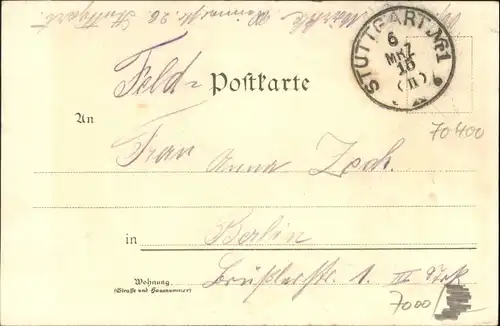 Stuttgart.
STUTTGART. Nr. 1
6
MRZ
15
(II)
Feld=Postkarte
An
Frau Anna Zech.
in Berlin
Wohnung.
(Straße und Hausnummer)
Brüßlerstr. 1. III Stck
70400
7000/